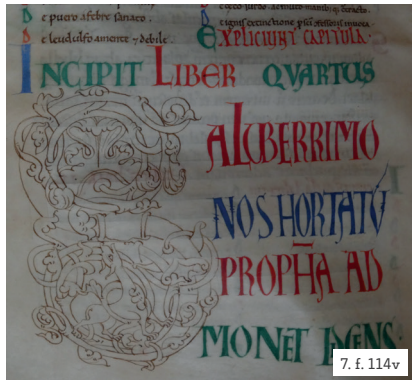 De puero afebre sanato.
De leudulfo amente ⁊ debile.
EXPLICIUNT CAPITULA.
INCIPIT LIBER QVARTUS
SALUBERRIMO
NOS HORTATŪ
PROPH̄A AD
MONET DICENS.
7. f. 114v